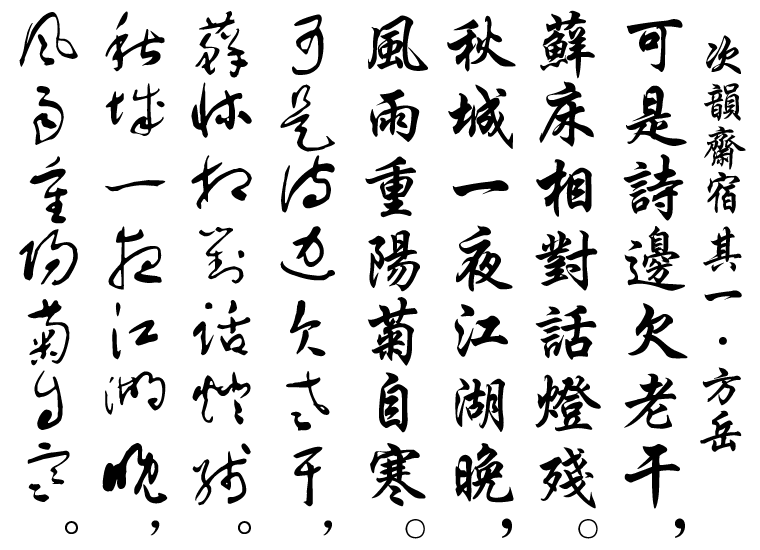 次韻齋宿 其一·方岳
可是詩邊欠老干，
蘇床相對話燈殘。
秋城一夜江湖晚，
風雨重陽菊自寒。
可是詩边欠老干，
蘇床相對話燈殘。
秋城一夜江湖晚，
風雨重陽菊自寒。